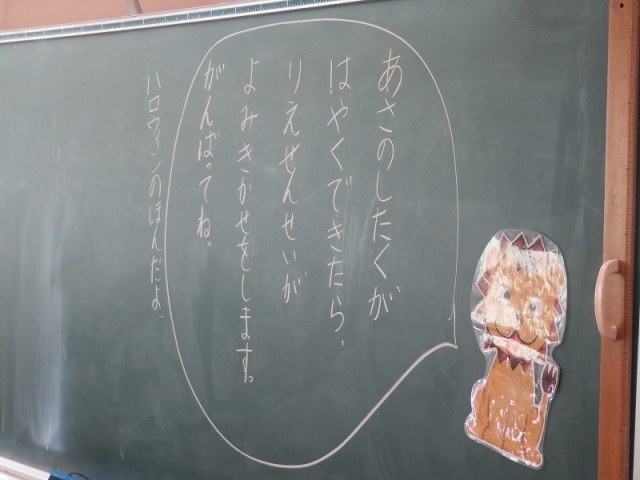 あさのしたくが
はやくできたら、
りえせんせいが
よみきかせをします。
がんばってね。
ハロウィンのほんだよ.